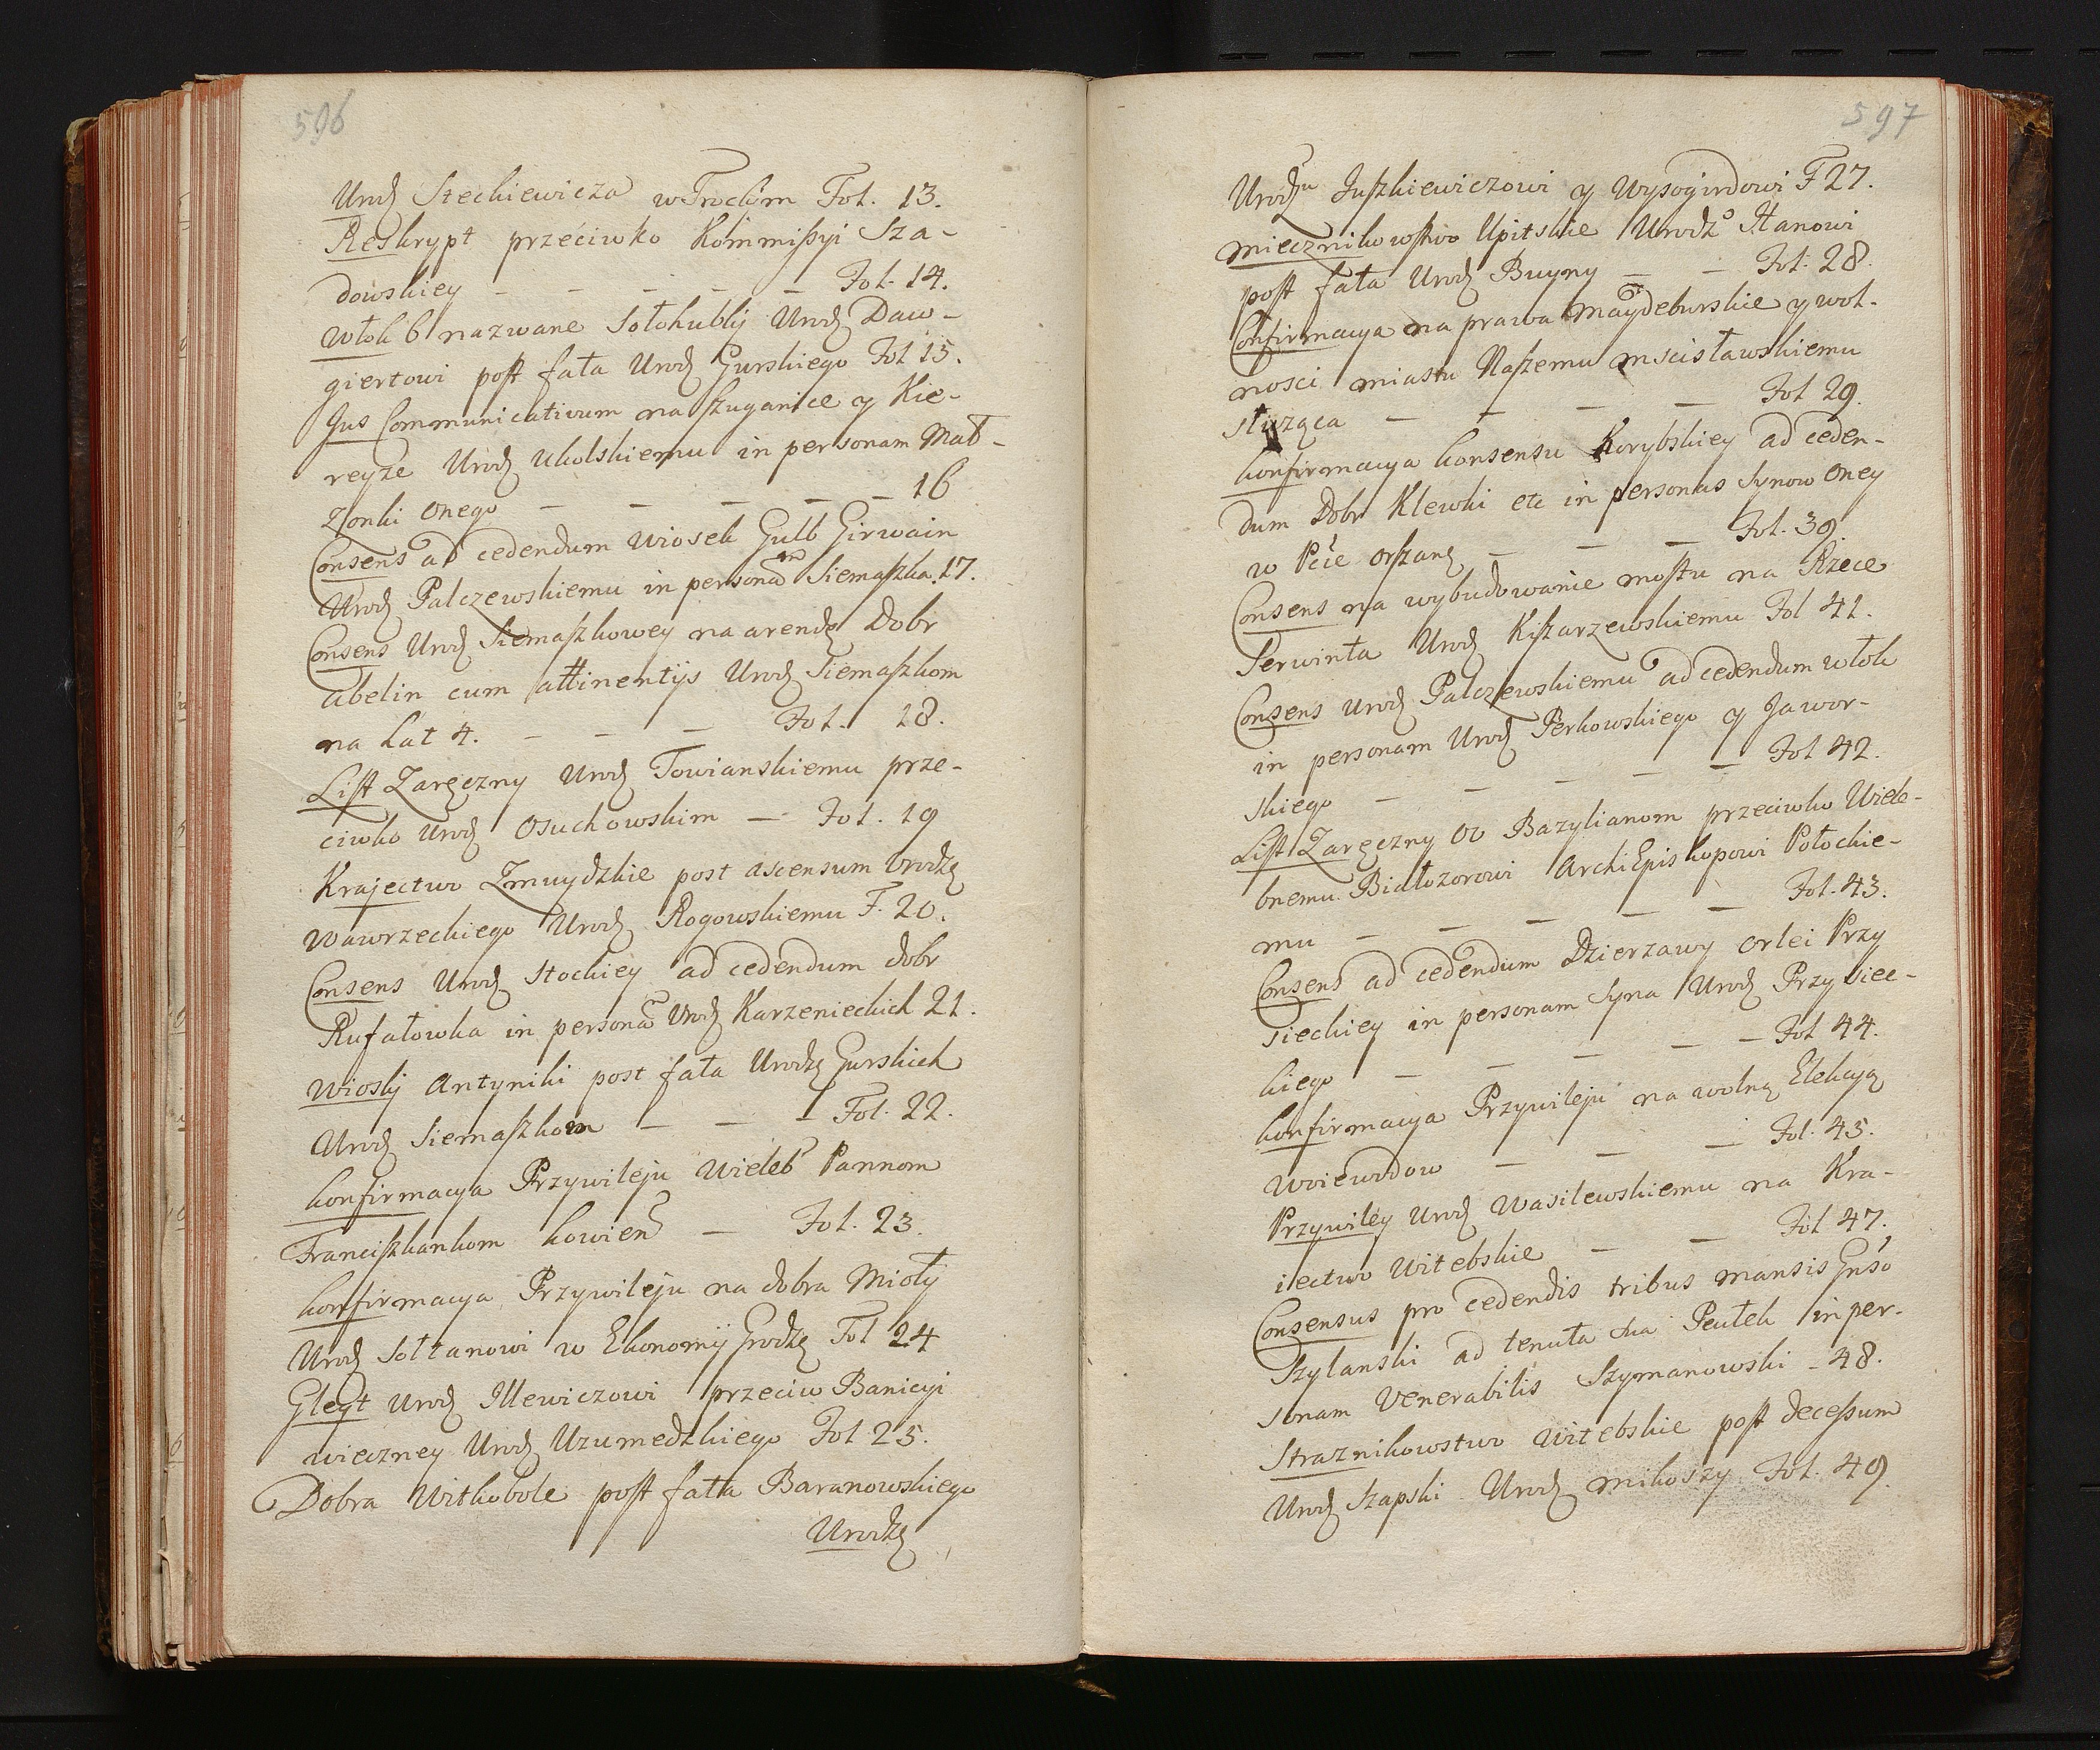 596
Urodz Steckiewicza w Trockim Fol. 13.
Reskrypt przeciwko Kommissyi Sza-
dowskiey - - - - - Fol. 14.
Włok 6 nazwane Sołokubły Urodz Daw-
giertowi post fata Urodz Gurskiego Fol 15.
Jus Communicativum na szuganice y Kie-
reyze Urodz Ukolskiemu in personam Mał-
zonki onego - - - - - 16
Consens ad cedendum wiosek Gulb Girwain
Urodz Palczewskiemu in personam Siemaszka. 17.
Consens Urodz Siemaszkowey na arendę Dobr
abelin cum attinentijs Urodz Siemaszkom
na Lat 4. - - - Fol. 18.
List Zaręczny Urodz Towianskiemu prze-
ciwko Urodz Osuchowskim - Fol. 19
Krajectwo Zmuydzkie post ascensum Urodzę
Wawrzeckiego Urodz Rogowskiemu F. 20.
Consens Urodz Stockiey ad cedendum dobr
Rufałowka in persona Urodz Karzenieckich 21.
Wioski Antyniki post fata Urodzę Gurskich
Urodz Siemaszkom - - - Fol. 22.
konfirmacya Przywileju Wieleb Pannom
Franciszkankom kowien - Fol. 23.
konfirmacya Przywileju na dobra Mioły
Urodz Sołtanowi w Ekonomij Grodzę Fol 24
Gleyt Urodz Illewiczowi przeciw Banicyi
wieczney Urodz Uzumedzkiego Fol 25.
Dobra Witkobole post fata Baranowskiego
Urodzę
597
Urodzu Juszkiewiczowi y Wysogirdowi F 27.
Miecznikowstwo Upitskie Urodzo Stanowi
post fata Urodz Buyny - - Fol. 28.
Confirmacya na prawa Maydeburskie y wol-
nosci miastu Naszemu Mscisławskiemu
służąca - - - - Fol 29.
konfirmacya konsensu Korybskiey ad ceden-
dum Dobr Klewki etc in personas Synow oney
w Pcie orszanę - - - Fol. 39.
Consens na wybudowanie mostu na Rzece
Serwinta Urodz Kiszarzewskiemu Fol 41.
Consens Urodz Palczewskiemu ad cedendum włok
in personam Urodz Perkowskiego y Jawor-
skiego - - - - - Fol 42.
List Zaręczny OO Bazylianom przeciwko Wiele-
bnemu Białozorowi ArchiEpiskopowi Połockie-
mu - - - - - Fol. 43.
Consens ad cedendum Dzierzawy orlei Przy
sieckiey in personam Syna Urodz Przysiec-
kiego - - - - - Fol 44.
konfirmacya Przywileju na wolną Elekcyą
Woiewodow - - - Fol. 45.
Przywiley Urodz Wasilewskiemu na Kra-
iectwo Witebskie - - Fol 47.
Consensus pro cedendis tribus mansis Gnso
Szylanski ad tenuta Peutek in per-
sonam Venerabilis Szymanowski - 48.
Straznikowstwo Witebskie post decessum
Urodz Szapski Urodz Mikoszy Fol. 49.